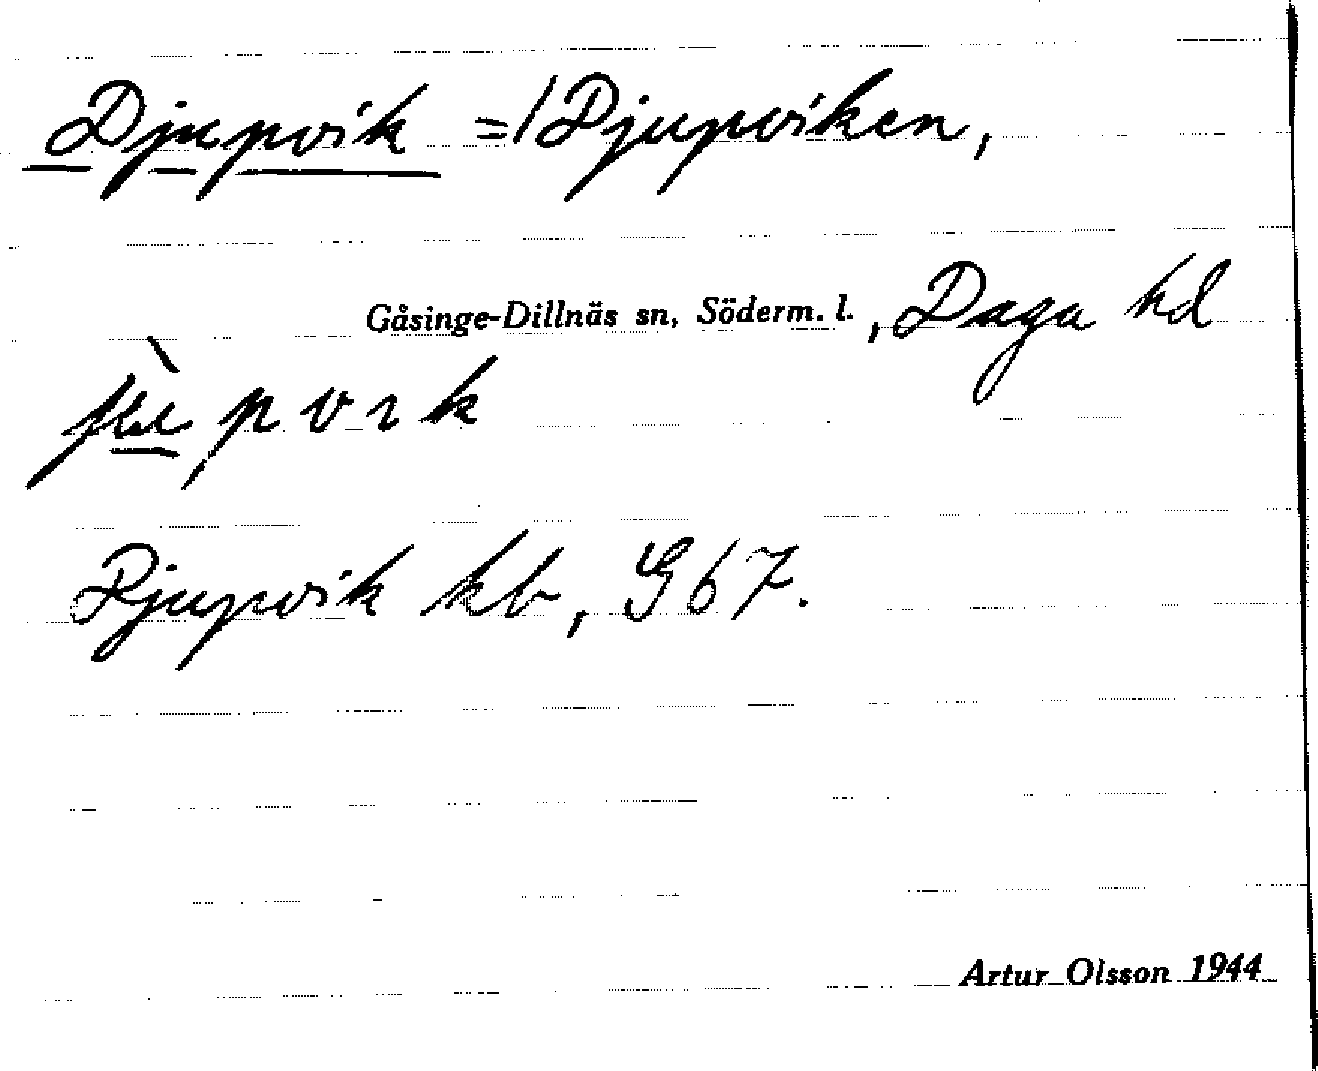 Djupvik =/Djupviken,
Gåsinge-Dillnäs sn, Söderm. l., Daga hd
Djupvik kb, G67.
Artur Olsson 1944